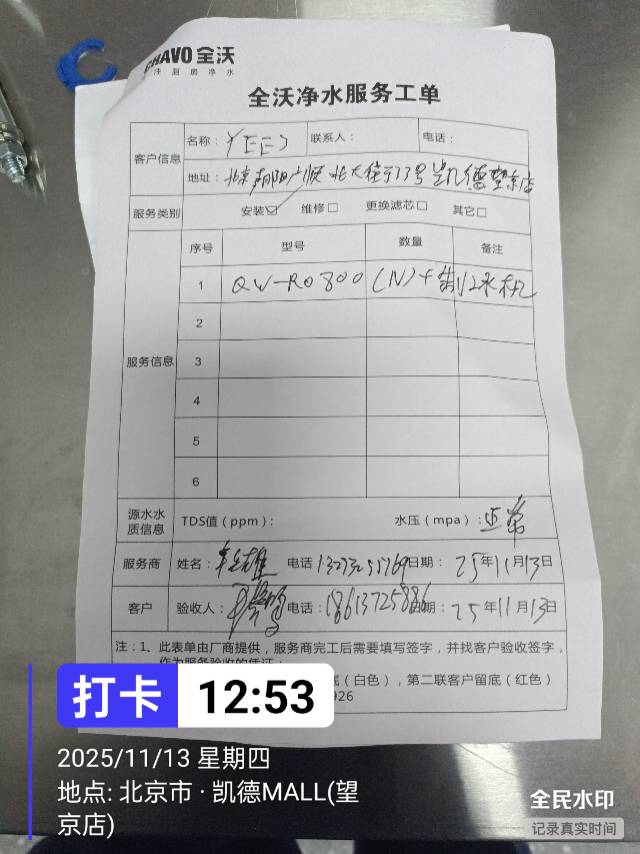 CHAVO 全沃
全沃净水服务工单
客户信息
名称: YEEJ 联系人: 电话:
地址: 北京朝阳广顺北大街33号凯德望京店
服务类别 安装☑ 维修□ 更换滤芯□ 其它□
服务信息
序号 型号 数量 备注
1 QW-RO800 (N)+制冰机
2
3
4
5
6
源水水质信息 TDS值(ppm): 水压(mpa): 正常
服务商 姓名: 电话 日期: 25年11月13日
客户 验收人: 电话: 18613725886 日期: 25年11月13日
注:1、此表单由厂商提供,服务商完工后需要填写签字,并找客户验收签字,
作为服务验收的凭证;
底(白色),第二联客户留底(红色)
926
打卡 12:53
2025/11/13 星期四
地点: 北京市 · 凯德MALL(望
京店)
全民水印
记录真实时间